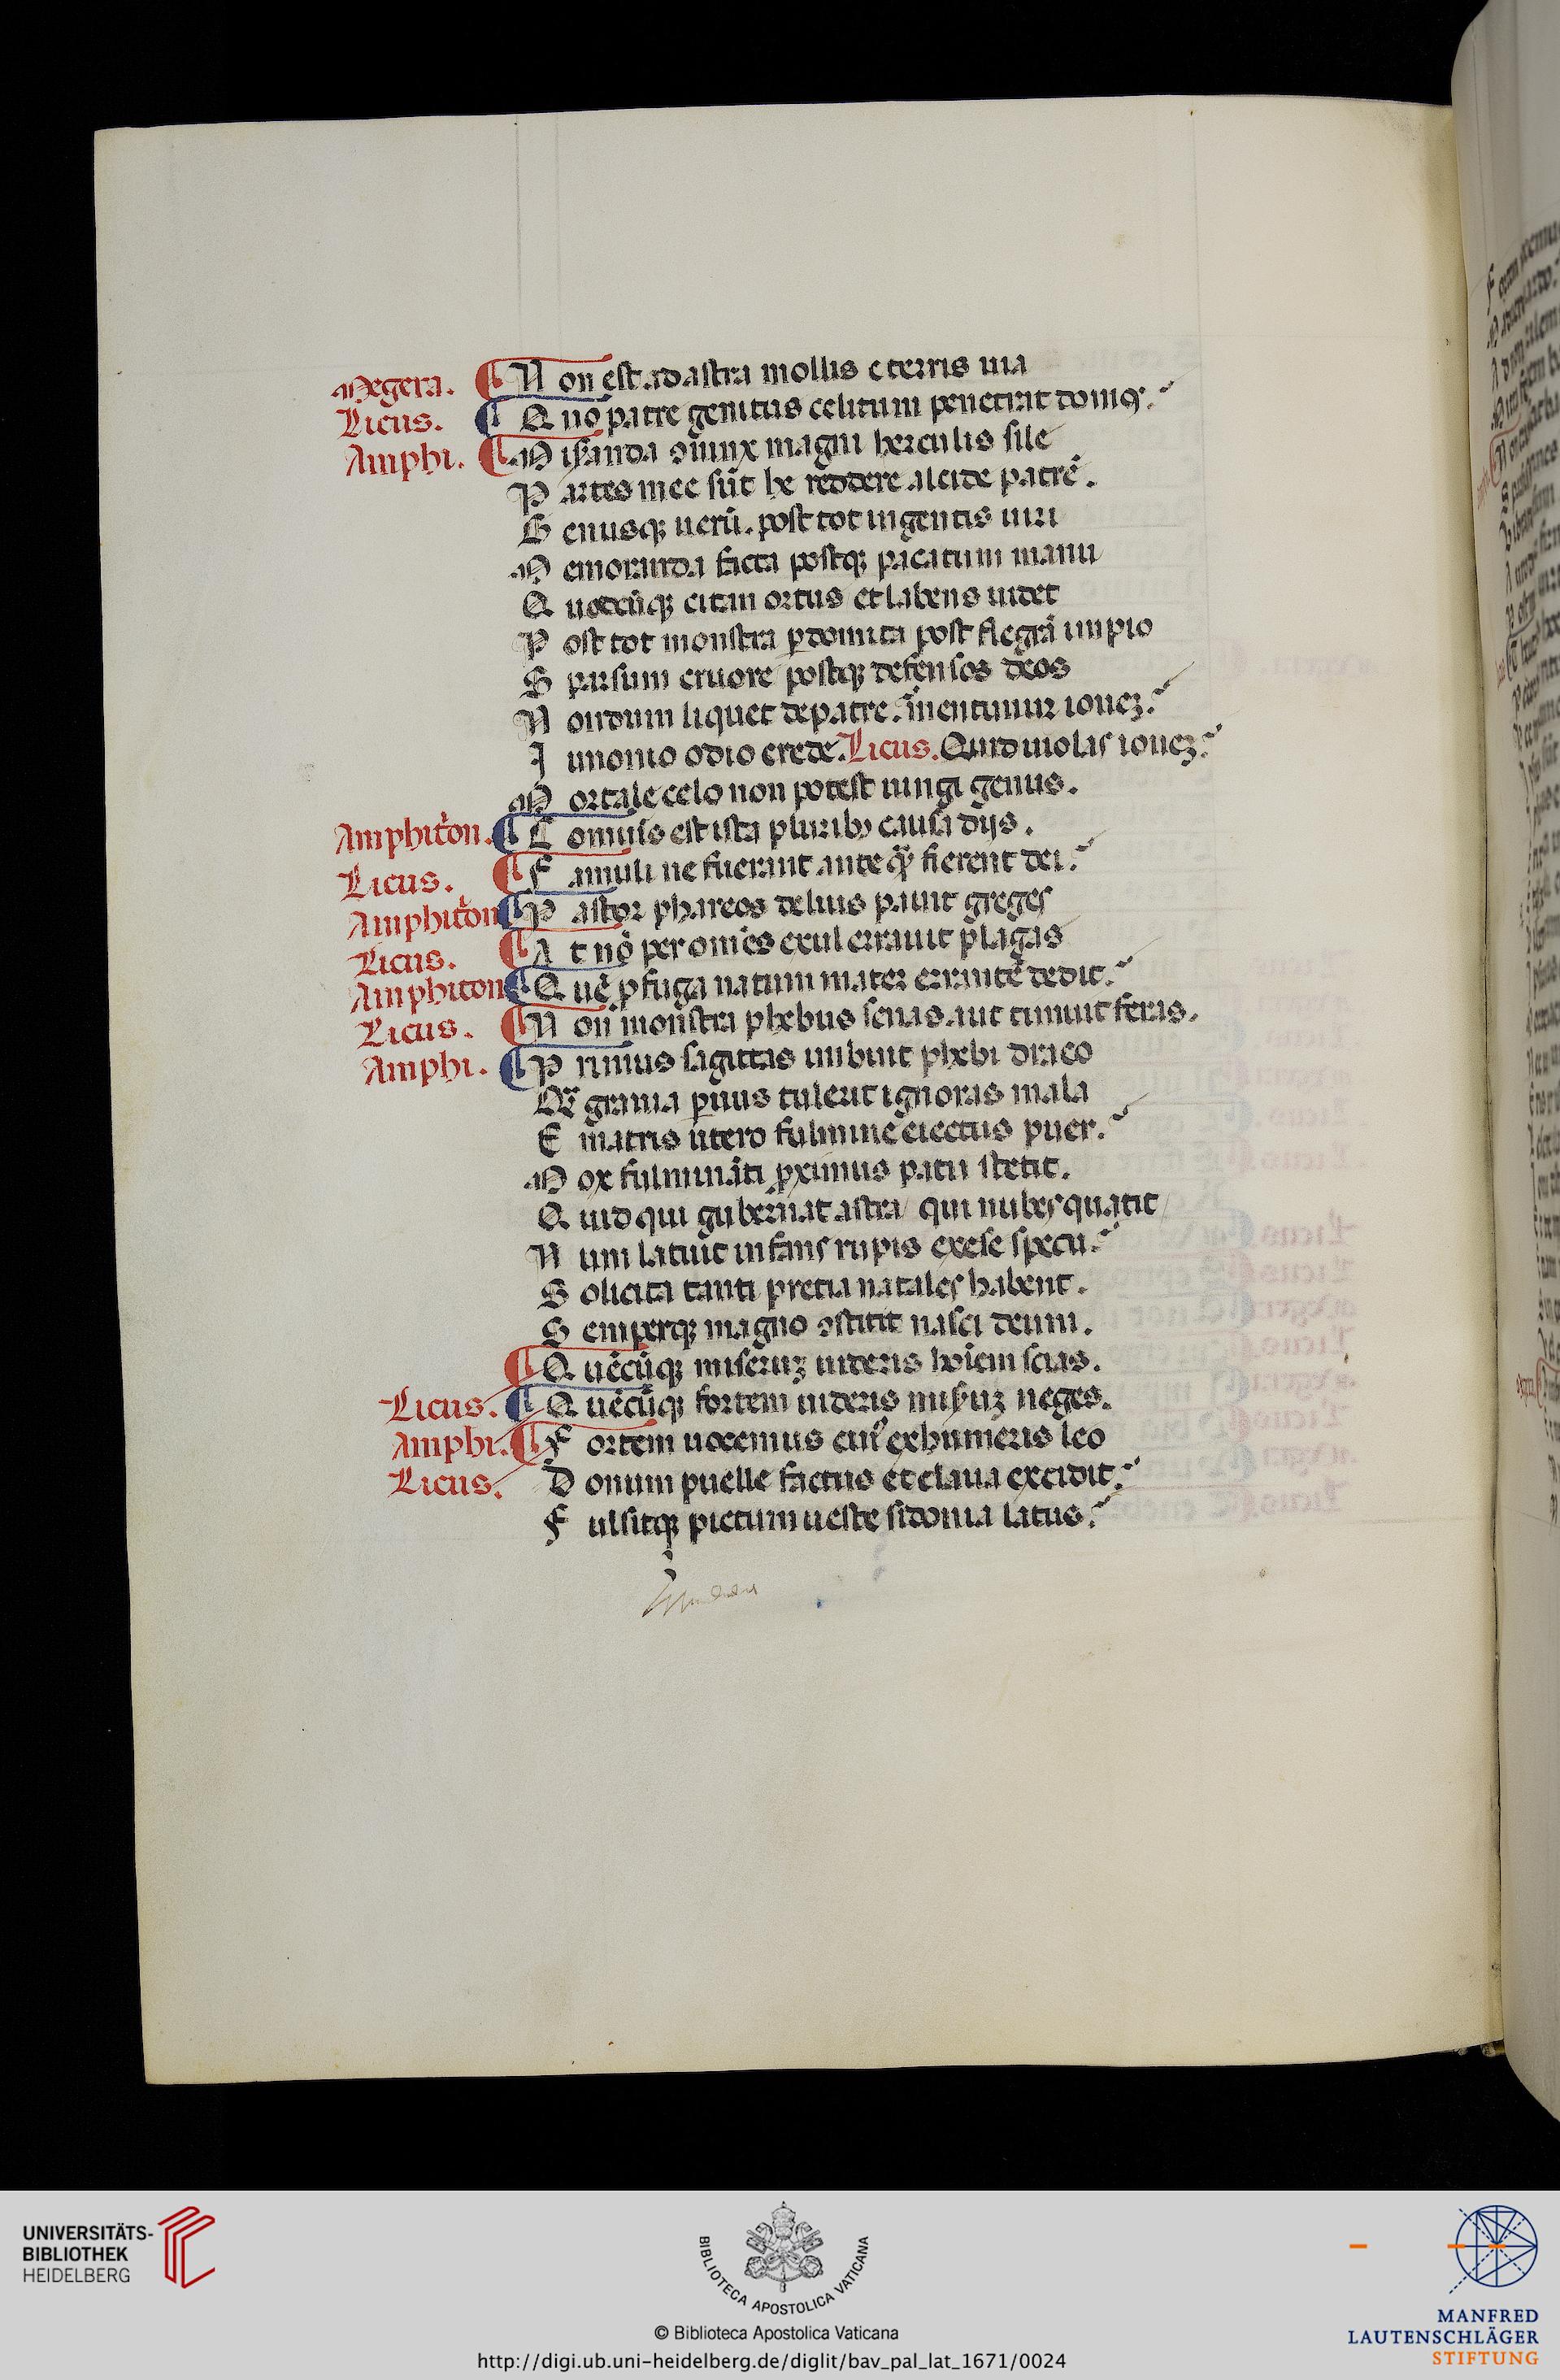 Megera. Non est ad astra mollis e terris uia
Licus. Quo patre genitus celitum penetrat domos.
Amphi. Miseranda ɔiunx magni herculis sile
Partes mee sũt he reddere alcide patrẽ.
Genusqꝫ uerũ. post tot ingentis uiri
Memoranda facta postqꝫ pacatum manu
Quodcũqꝫ titan ortus et labens uidet
Post tot monstra ꝑdomita post flegrã impio
Sparsum cruore postqꝫ defensos deos
Nondum liquet de patre. mentimur ioueꝫ.
Iunonio odio crede. Licus. Quid uiolas ioueꝫ.
Mortale celo non potest iungi genus.
Amphitõn. Comũis est ista pluribꝫ causa dijs.
Licus. Famuli ne fuerant ante qꝫ fierent dei.
Amphitõn Pastor phareos deluis pauit greges
Licus. At nõ per omẽs exul errauit plagas
Amphiton Quẽ ꝓfuga natum mater errantẽ dedit.
Licus. Non monstra phebus seuas aut timuit feras.
Amphi. Primus sagittas imbuit phebi draco
Qꝫ grauia paruus tulerit ignoras mala
E matris utero fulmine eiectus puer.
Mox fulminãti ꝓximus patri stetit.
Quid qui gubernat astra qui nubes quatit
Num latuit infans rupis exese specu.
Solicita tanti pretia natales habent.
Semperqꝫ magno ɔstitit nasci deum.
Quẽcũqꝫ miseruꝫ uideris hoiẽm scias.
Licus. Quẽcũqꝫ fortem uideris miseruꝫ neges.
Amphi. Fortem uocemus cui9 ex humeris leo
Licus. Donum puelle factus et claua excidit.
Fulsitqꝫ pictum ueste sidonia latus.
UNIVERSITÄTS-
BIBLIOTHEK
HEIDELBERG
BIBLIOTECA APOSTOLICA VATICANA
© Biblioteca Apostolica Vaticana
http://digi.ub.uni-heidelberg.de/diglit/bav_pal_lat_1671/0024
MANFRED
LAUTENSCHLÄGER
STIFTUNG